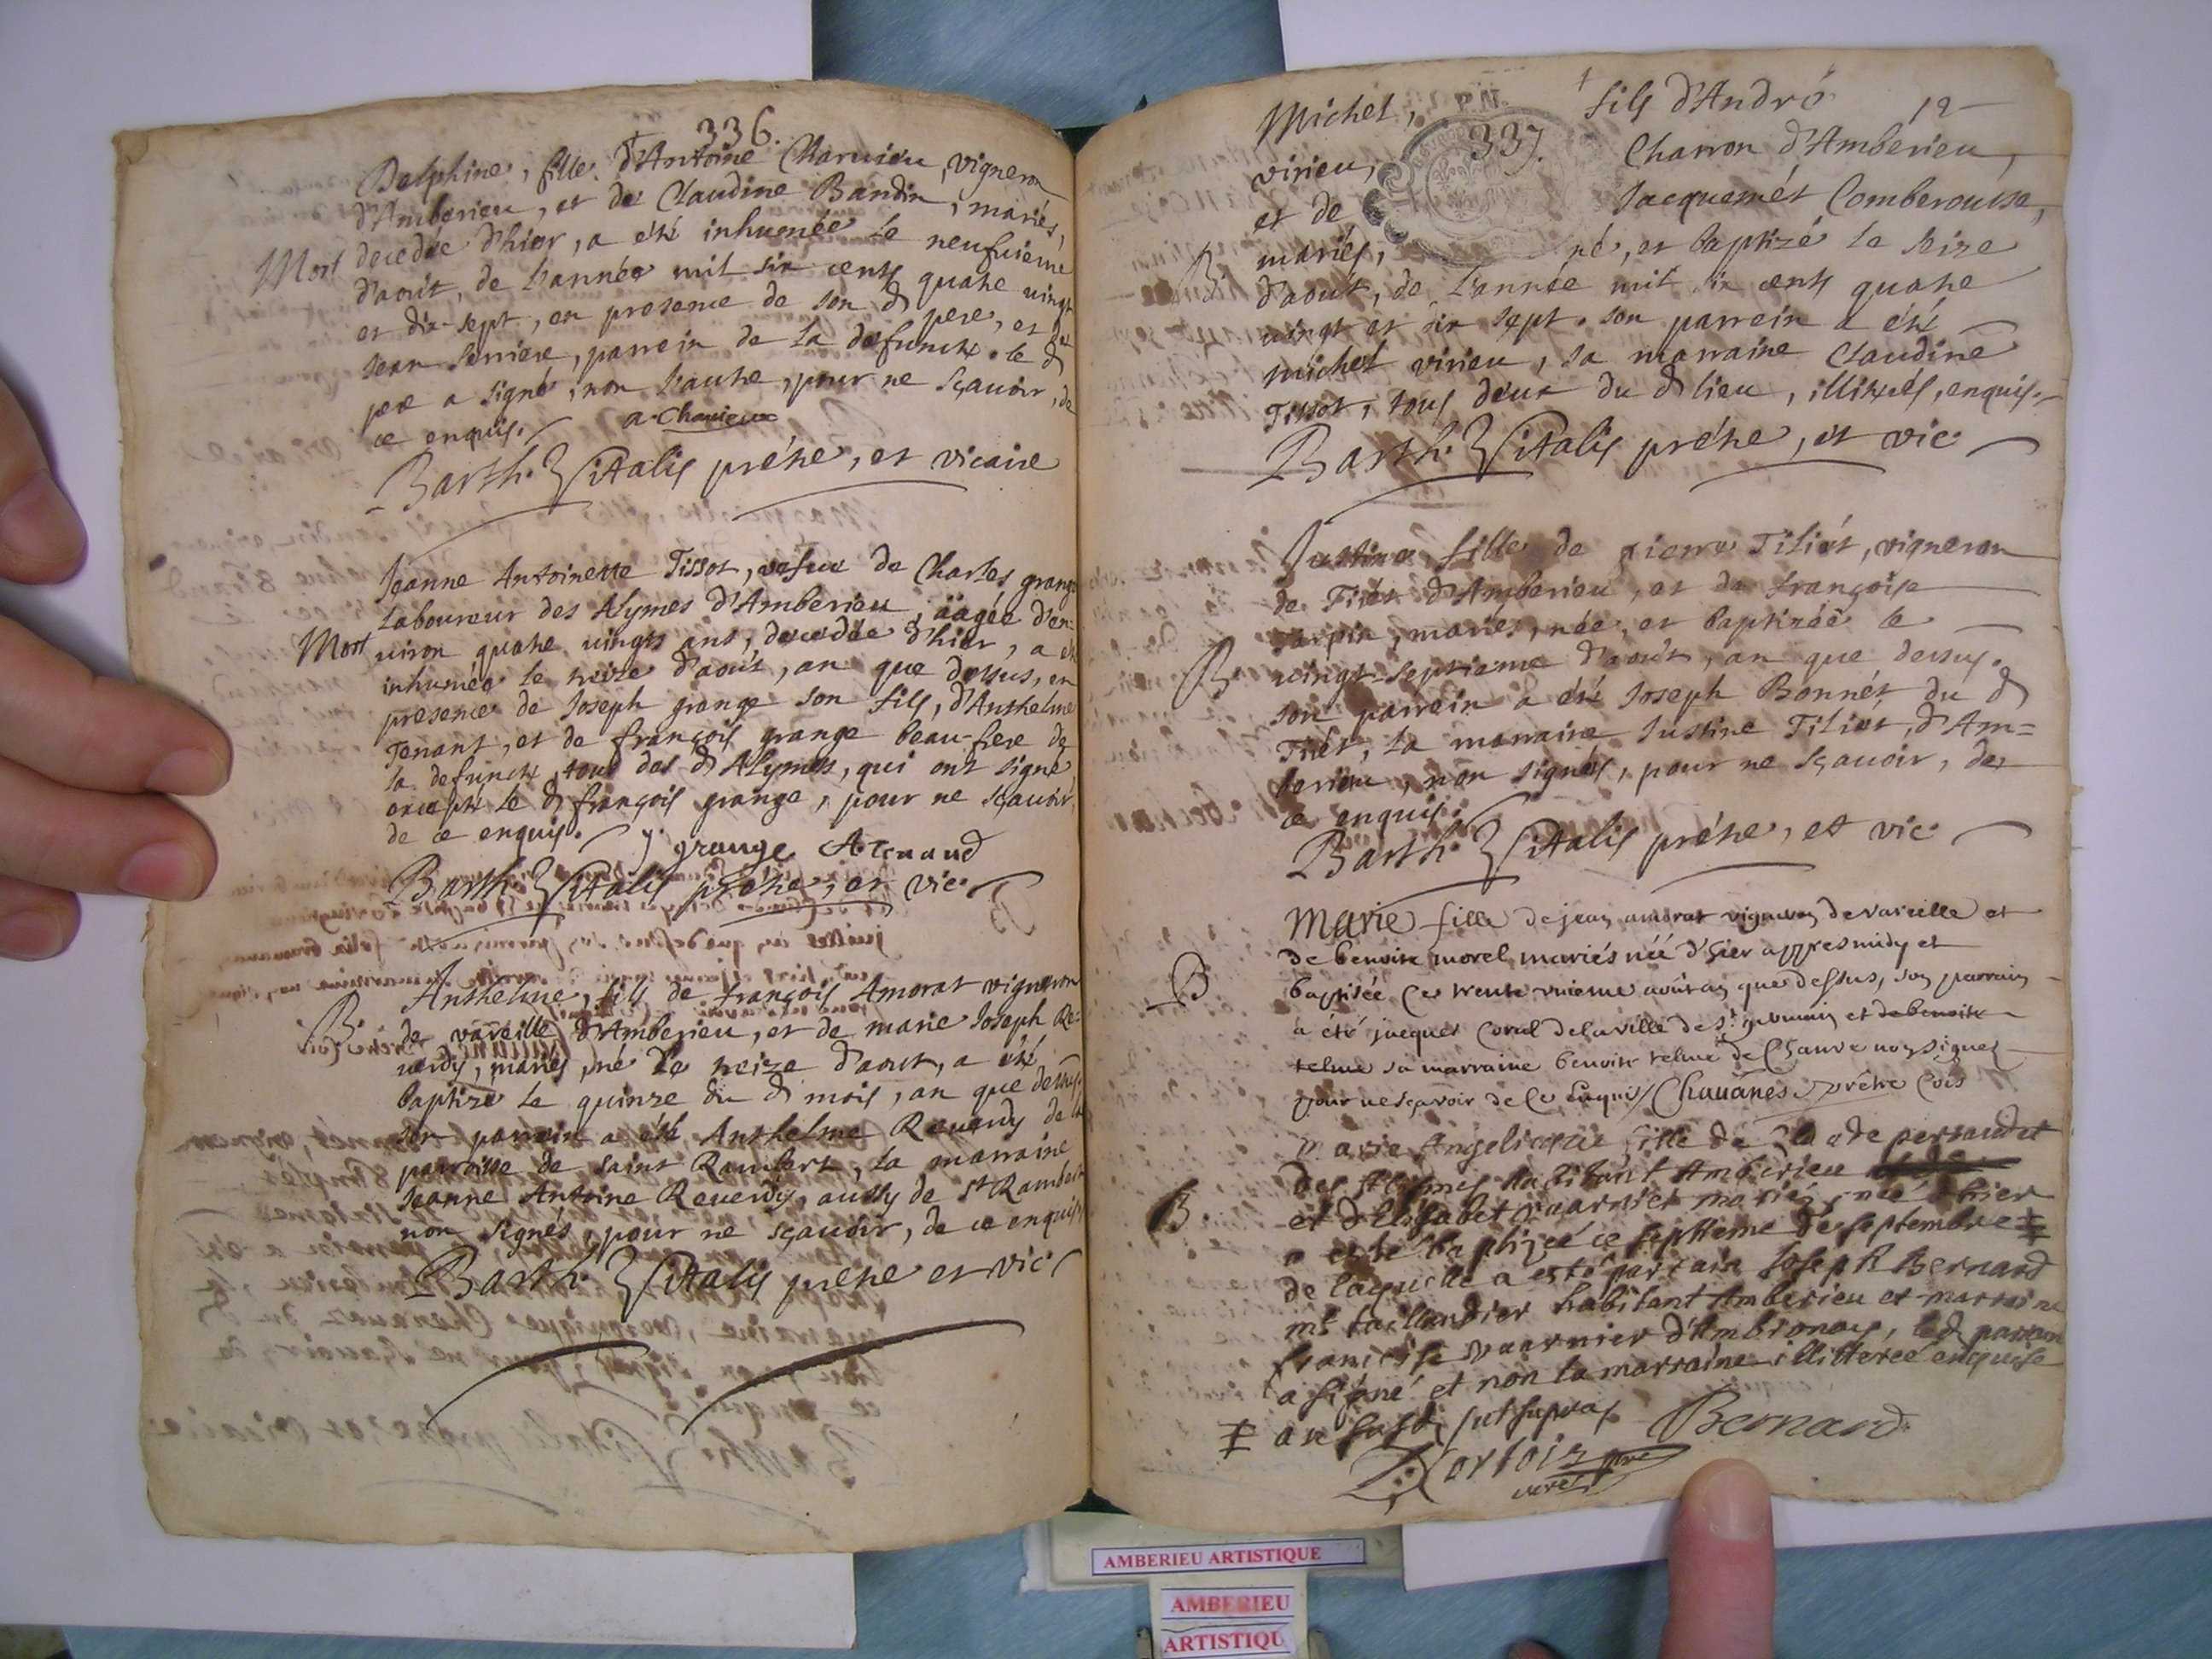 336.
Delphine, fille d'Antoine Charuieu, vigneron
d'Amberieu, et de Claudine Bandin, mariés,
Mort decedée d'hier, a été inhumée le neufuieme
d'août, de l'année mil six cents quatre vingt
et dix-sept, en presence de son d pere, et de
Jean Serriere, parrein de la defuncte. le d
pere a signé, non l'autre, pour ne sçauoir, de
ce enquis. a Charuieux
Barth. Vitalis prétre, et vicaire
Jeanne Antoinette Tissot, vefue de Charles grange
laboureur des Alymes d'Amberieu, äagée d'en-
Mort uiron quatre vingts ans, decedée d'hier, a été
inhumée le treize d'août, an que dessus, en
presence de Joseph grange son fils, d'Anthelme
Tenant, et de françois grange beau-frere de
la defuncte, tous des d Alymes, qui ont signé,
excepté le d françois grange, pour ne sçauoir,
de ce enquis. J. grange A Tenand
Barth. Vitalis prétre, et vic.
Anthelme, fils de françois Amorat vigneron
B. de vareille d'Amberieu, et de marie Joseph Re-
uerdy, mariés, né le treize d'aout, a été
baptizé le quinze du d mois, an que dessus.
son parrein a été Anthelme Reuerdy de la
parroisse de saint Rambert, la marraine
Jeanne Antoine Reuerdy, aussy de St Rambert
non signés, pour ne sçauoir, de ce enquis.
Barth. Vitalis prétre et vic.
337.
Michel, fils d'André
virieu, Charron d'Amberieu,
et de Jacquemét Comberousse,
mariés, né, et baptizé le seize
B. d'août, de l'année mil six cents quatre
vingt et dix sept. son parrein a été
michel virieu, sa marraine Claudine
Tissot, tous deux du d lieu, illitérés, enquis.
Barth. Vitalis prétre, et vic.
Justine fille de pierre Tiliét, vigneron
de Tiret d'Amberieu, et de françoise
mariés, née, et baptizée le
B. vingt-septieme d'août, an que dessus.
son parrein a été Joseph Bonnét du d
Tiret, la marraine Justine Tiliet, d'Am=
berieu, non signés, pour ne sçauoir, de
ce enquis.
Barth. Vitalis prétre, et vic.
Marie fille de jean amorat vigneron de vareille et
de benoite morel mariés née d'hier appres midy et
B baptisée ce trente unieme août an que dessus, son parrain
a été jacques de la ville de St et de benoite
telme sa marraine benoite telme de non signez
pour ne sçavoir de ce Enquis Chauanes prêtre
Marie Angelique fille de Claude persaudet
des Alymes habitant Amberieu
B. et d'Elisabet vuarnier mariés née d'hier
a esté baptizeé ce septieme de septembre ‡
de laquelle a esté parrain Joseph Bernard
mt taillandier habitant Amberieu et marraine
francoise vuarnier d'Ambronay, led parrain
a signé et non la marraine illitereé enquise
‡ an susd. Bernard